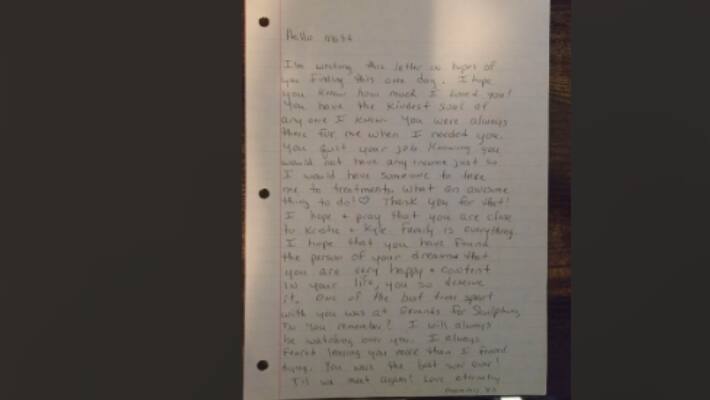 Hello Matt
I'm writing this letter in hopes of
you finding this one day. I hope
you know how much I loved you!
You have the kindest soul of
anyone I know. You were always
there for me when I needed you.
You quit your job knowing you
would not have any income just so
I would have someone to take
me to treatments. What an awesome
thing to do!♡ Thank you for that!
I hope + pray that you are close
to + Kyle. Family is everything.
I hope that you have found
the person of your dreams + that
you are very happy + content
in your life, you so deserve
it. One of the best times spent
with you was at Grounds for Sculpture,
Do you remember? I will always
be watching over you. I always
feared leaving you more than I feared
dying. You was the best son ever!
Til we meet again! Love eternity